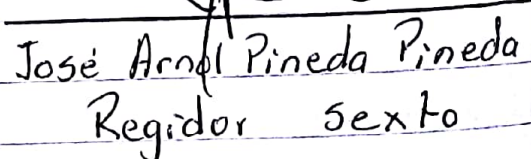 José Arnol Pineda Pineda
Regidor sexto